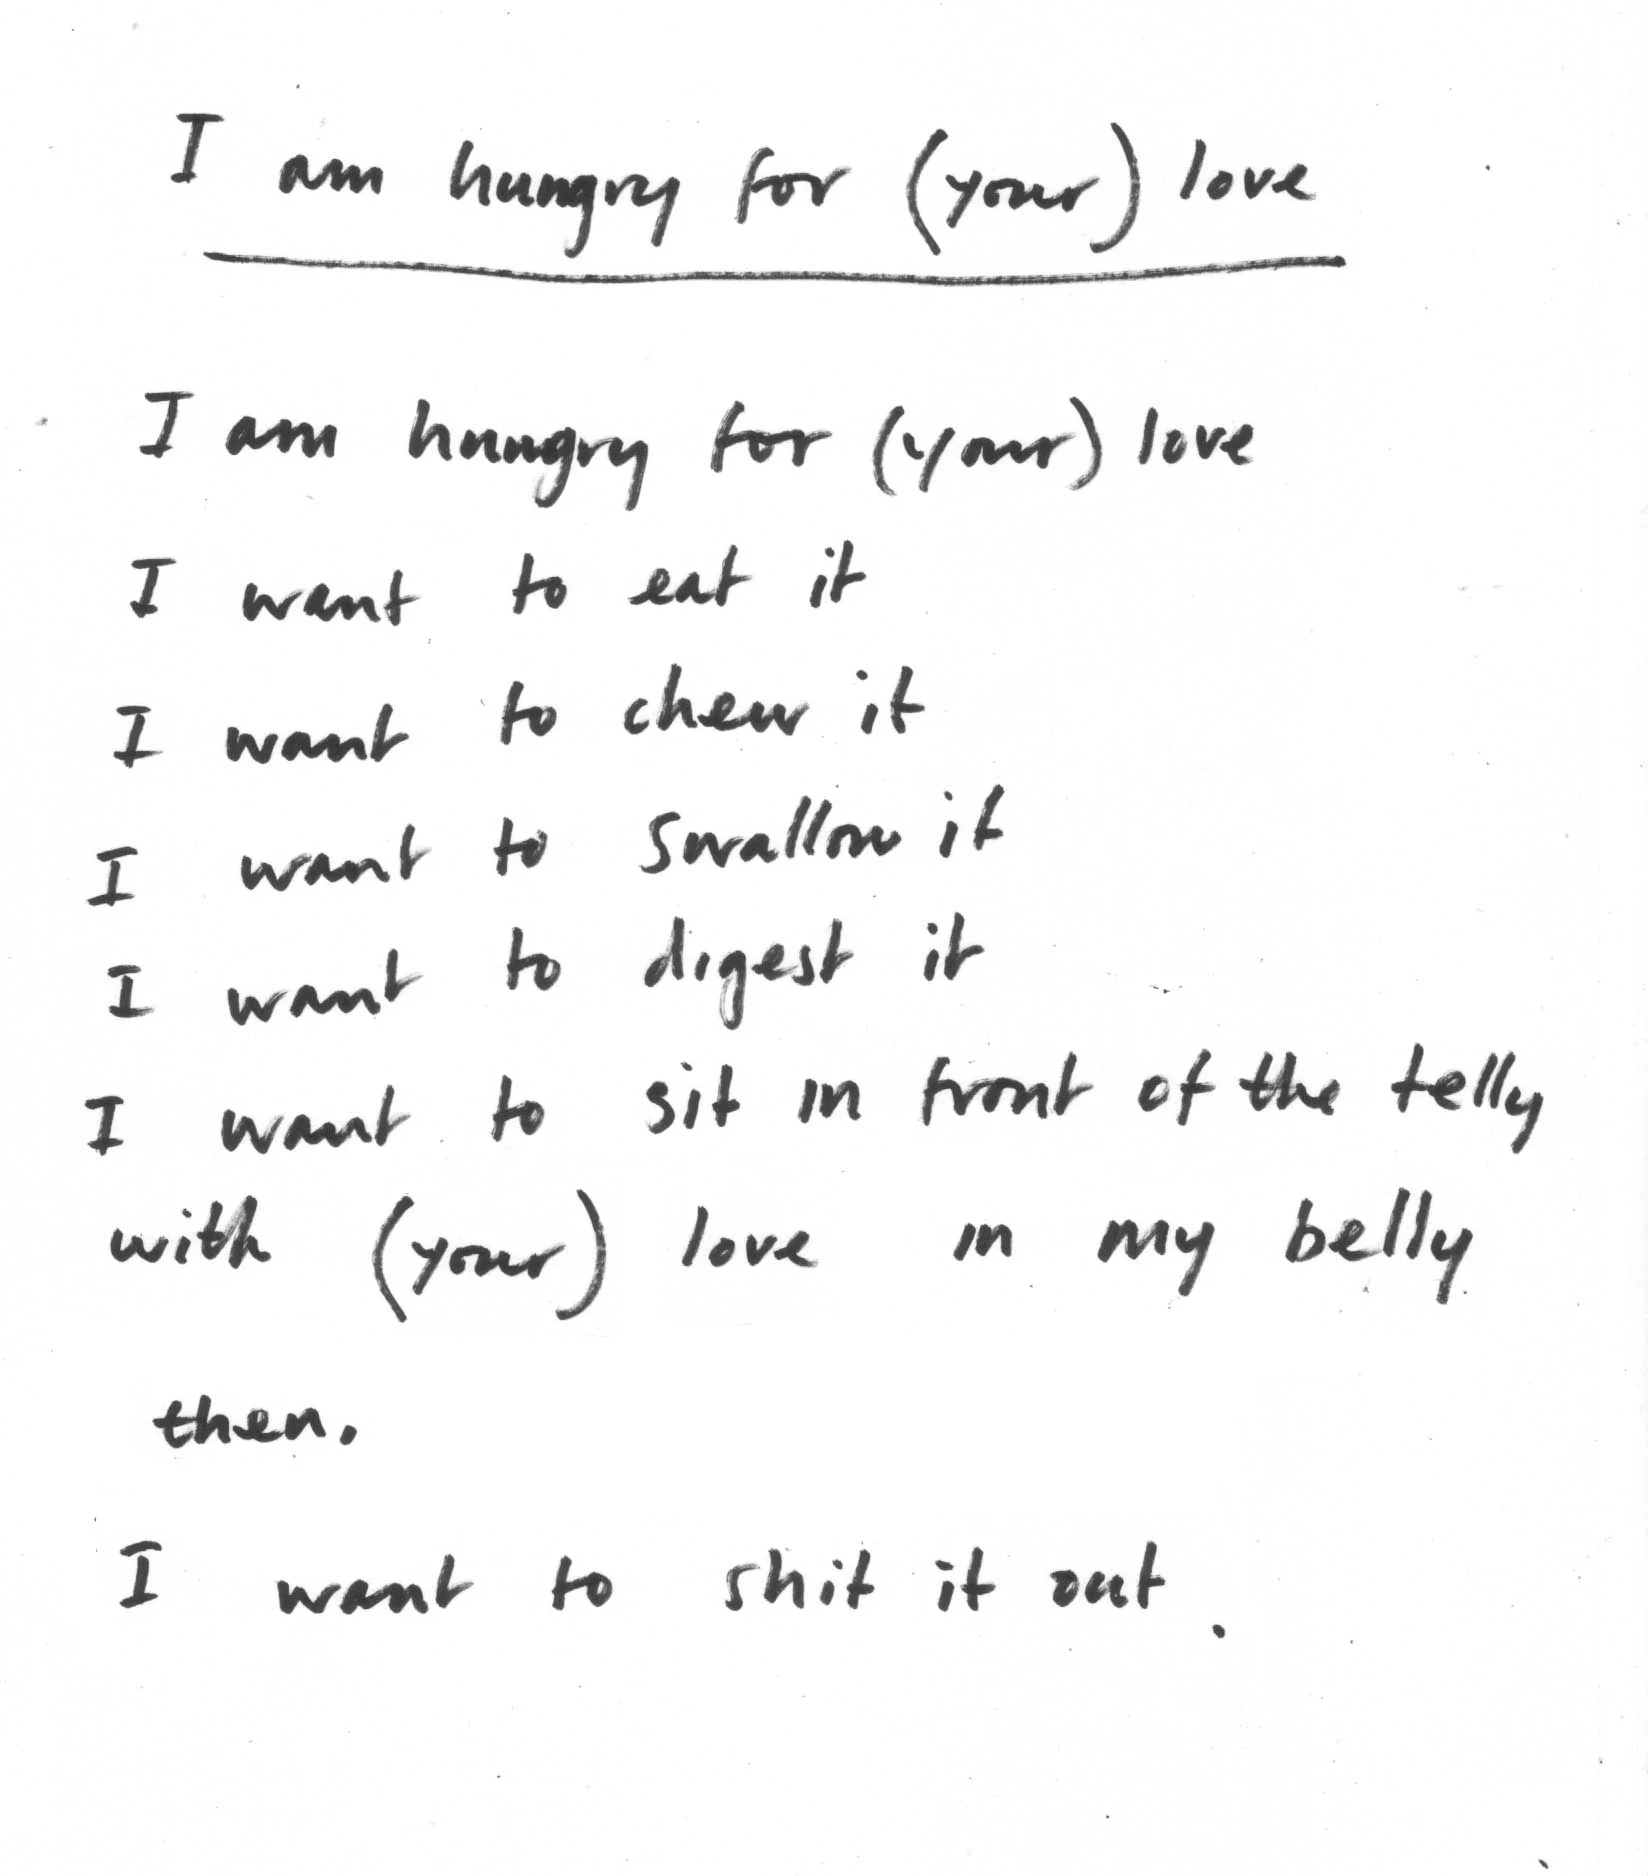 I am hungry for (your) love
I am hungry for (your) love
I want to eat it
I want to chew it
I want to swallow it
I want to digest it
I want to sit in front of the telly
with (your) love in my belly
then.
I want to shit it out.